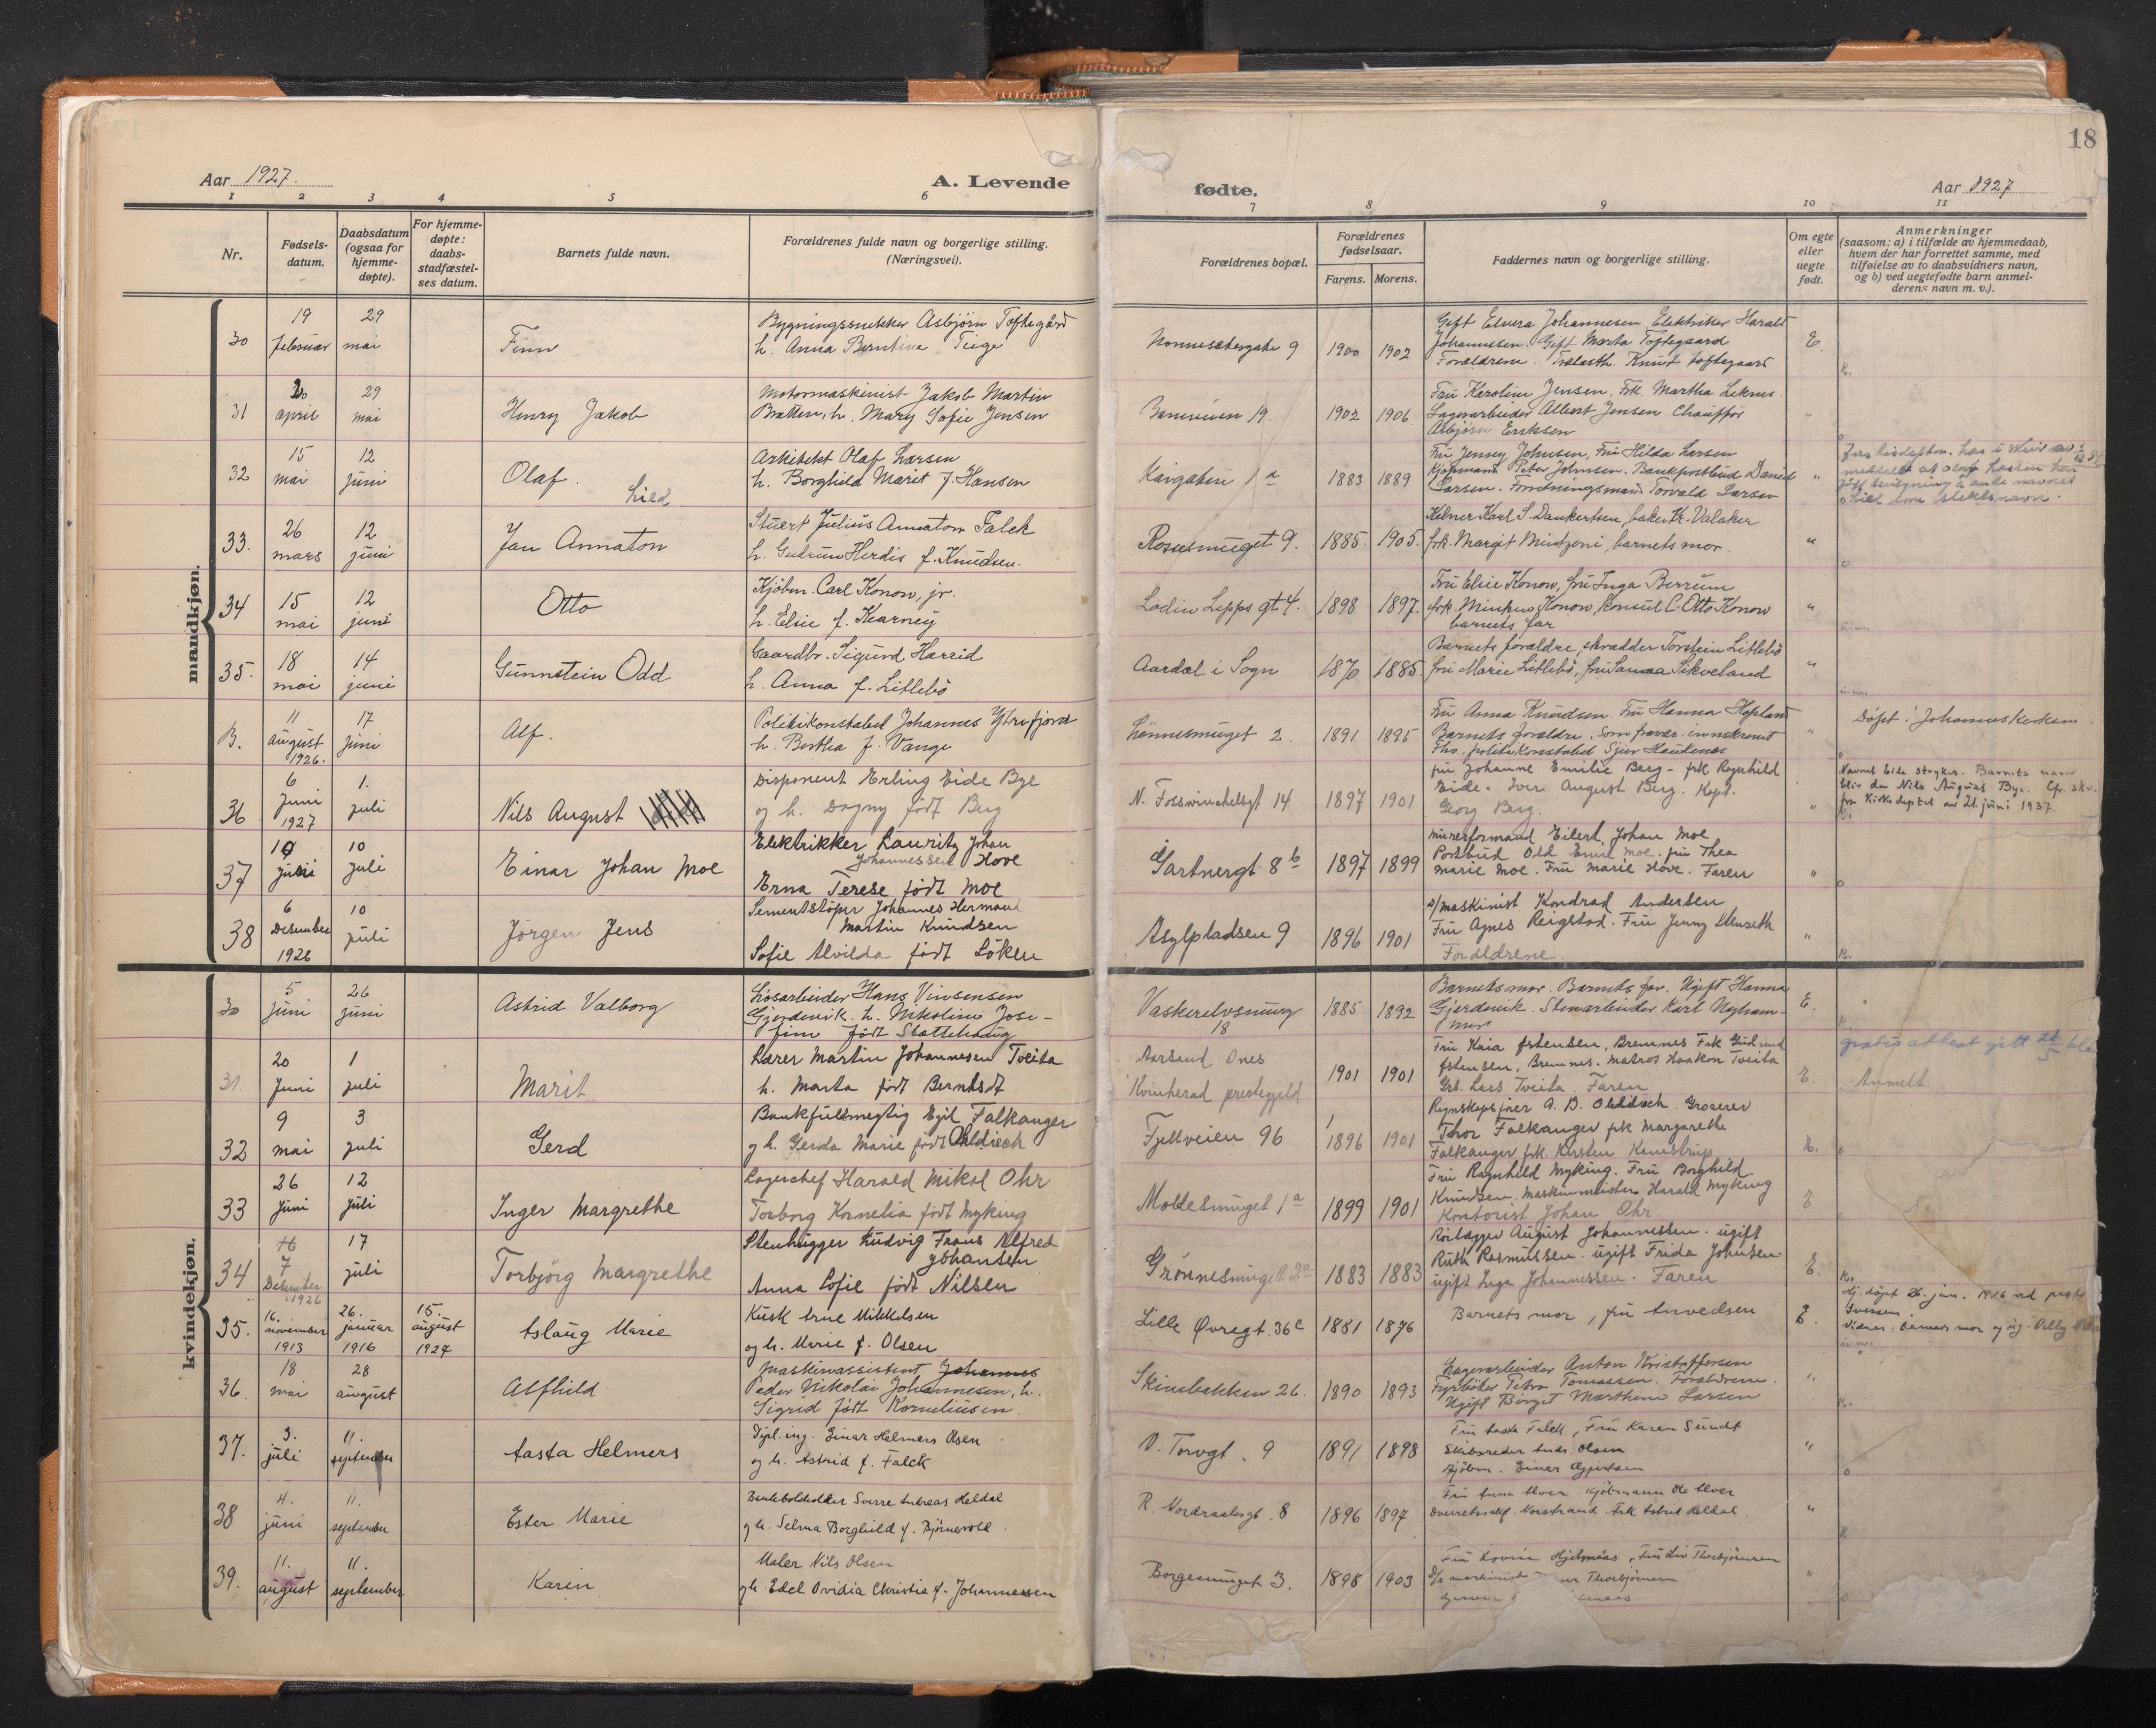 18
Aar 1927.
A. Levende
fødte.
Aar 1927
1 2 3 4 5 6
7 8 9 10 11
Nr.
Fødsels-
datum.
Daabsdatum
(ogsaa for
hjemme-
døpte).
For hjemme-
døpte:
daabs-
stadfæstel-
ses datum.
Barnets fulde navn.
Forældrenes fulde navn og borgerlige stilling.
(Næringsvei).
Forældrenes bopæl.
Forældrenes
fødselsaar.
Farens. Morens.
Faddernes navn og borgerlige stilling.
Om egte
eller
uegte
født.
Anmerkninger
(saasom: a) i tilfælde av hjemmedaab,
hvem der har forrettet samme, med
tilføielse av to daabsvidners navn,
og b) ved uegtefødte barn anmel-
derens navn m. v.).
mandkjøn.
30
19
februar
29
mai
Finn
Bygningssnekker Asbjørn Toftegård
h. Anna Berntine Teige
Nonnesetergate 9
1900 1902
Gift Elvera Johannesen Elektriker Harald
Johannesen. Gift Marta Toftegaard
Forældrene. Knut Toftegaard
E
31
20
april
29
mai
Henry Jakob
Motormaskinist Jakob Martin
Bratten, h. Mary Sofie Jensen
19
1902 1906
Fru Karoline Jensen, Frk. Martha Leknes
Lagerarbeider Albert Jensen Chauffør
Asbjørn Eriksen
"
32
15
mai
12
juni
Olaf.
Lied
Arkitekt Olaf Larsen
h. Borghild Marit f. Hansen
Kaigaten 1 a
1883 1889
Fru Jenny Johnsen, Fru Hilda Larsen
Kjøpmann Peter Johnsen. Bankpostbud Daniel
Larsen. Forretningsmand Torvald Larsen
"
33.
26
mars
12
juni
Jan Annaton
Stuert Julius Annaton Falck
h. Gudrun Herdis f. Knudsen.
Rosesmuget 9.
1885. 1905.
Kelner Karl S. Dankertsen, baker Kr. Valaker
frk. Margit Mintzoni, barnets mor.
"
34
15
mai
12
juni
Otto
Kjøbm. Carl Konow, jr.
h. Elsie f. Kearney
Lodin Lepps gt. 4.
1898 1897.
Fru Elsie Konow, fru Inga Berrum
frk. Konow, Konsul C. Otto Konow
barnets far
"
35.
18
mai
14
juni
Gunnstein Odd
Gaardbr. Sigurd Harrid
h. Anna f. Litlebö
Aardal i Sogn
1876 1885.
Barnets forældre, skrædder Torstein Litlebö
fru Marie Litlebö, fru Sikveland
"
B.
11
august
1926.
17
juni
Alf.
Politikonstabel Johannes Ytrefjord
h. Bertha f. Vange
Lönnesmuget 2.
1891 1895
Fru Anna Knudsen. Fru Hanna Hopland
Barnets forældre, som
Ths. politikonstabel Sjur Haukenes
"
Döpt i Johanneskirken.
36
6
Juni
1927
1.
juli
Nils August
Disponent Erling Eide Bye
og h. Dagny född Berg
N. Fosswinckelsgt 14
1897 1901
fru Johanne Emilie Berg - frk. Ragnhild
Eide. Iver August Berg. Kapt.
Georg Berg.
"
Navnet Eide strykes. Barnets navn
blir da Nils August Bye. Cfr. skr.
fra Kirkedeptet av 21. juni 1937.
37
10
juni
10
juli
Einar Johan Moe
Elektrikker Lauritz Johan
Johannessen Hove
Erna Terese född Moe
Gartnergt 8 b
1897 1899
murerformand Eilert Johan Moe
Postbud Moe. fru Thea
Marie Moe. Fru Marie Hove. Faren
"
38
6
Desember
1926
10
juli
Jörgen Jens
Sementstöper Johannes Hermand
Martin Knudsen
Sofie Alvilda född Löken
Asylpladsen 9
1896 1901
D/maskinist Kondrad Andersen
Fru Agnes Reigstad. Fru Jenny
Forældrene.
"
kvindekjøn.
30
5
juni
26
juni
Astrid Valborg
Lösarbeider Hans Vinsensen
Gjerdevik. h. Nikoline Jose-
fine född
Vaskerelvsmug
18
1885 1892
Barnets mor. Barnets far. Ugift Hanna
Gjerdevik. Stenarbeider Karl
E.
31.
20
Juni
1
juli
Marit
Lærer Martin Johannesen Tveita
h. Marta född Berntsdt
Aarsand Ones
Kvinherad prestegjeld
1901 1901
Fru Kaia Østensen, Bremnes Frk
Østensen, Bremnes. Matros Haakon Tveita
Grb. Lars Tveita. Faren
E.
Anmelt
32
9
mai
3
juli
Gerd
Bankfuldmegtig Egil Falkanger
g h. Gerda Marie född Ohldieck
Fjellveien 96
1896 1901
Regnskapsfører A. B. Ohldieck. Grosserer
Thor Falkanger frk Margarethe
Falkanger frk. Kirsten
E.
33
26
Juni
12
Juli
Inger Margrethe
Lagerchef Harald Mikal Ohr
Torborg Kornelia född Myking
Moldesmuget 1 a
1899 1901
Fru Ragnhild Myking. Fru Borghild
Knudsen. Maskinmester Harald Myking
Kontorist Johan Ohr.
E
34
7
Desember
1926
17
juli
Torbjörg Margrethe
Stenhugger Ludvig Frans Alfred
Johansen
Anna Sofie född Nilsen
Grönnesmuget 2 a
1883 1883
Rörlægger August Johannessen. ugift
Ruth Rasmussen. ugift Frida Johnsen
ugift Inga Johannessen. Faren
E.
35.
16.
november
1913
26.
januar
1916
15.
august
1927
Aslaug Marie
Kusk Arne Mikkelsen
og h. Marie f. Olsen
Lille Øvregt. 36 c
1881 1876
Barnets mor, fru
E.
Hj. døpt 26. jan. 1916 ved prest
Iversen.
36.
18
mai
28
august
Alfhild
Maskinassistent Johannes
Peder Nikolai Johannesen, h.
Sigrid född Korneliusen.
Skivebakken 26.
1890 1893
Lagerarbeider Anton Kristoffersen
Fyrbøter Petra Tomassen. Forældrene.
Ugift Birgit Marthine Larsen
"
37.
3.
juli
11.
september
Aasta Helmers
Dipl. ing. Einar Helmers Olsen
og h. Astrid f. Falck
V. Torvgt. 9
1891 1898
Fru Aasta Falck, Fru Karen Sundt
Skibsreder Olsen
Kjöbm. Einar
"
38
4.
juni
11.
september
Ester Marie
Bankbokholder Sverre Andreas Heldal
g h. Selma Borghild f. Björnevold.
R. Nordraaksgt. 8
1896 1897
Fru Anna Kjöbmann
Frk. Astrid Heldal
"
39.
11.
august
11.
september
Karin
Maler Nils Olsen
g h. Edel Ovidia Christie f. Johannessen
Borgesmuget 3.
1898 1903
Fru Hjelmaas, Fru Liv Thorbjörnsen
Thorbjörnsen
"